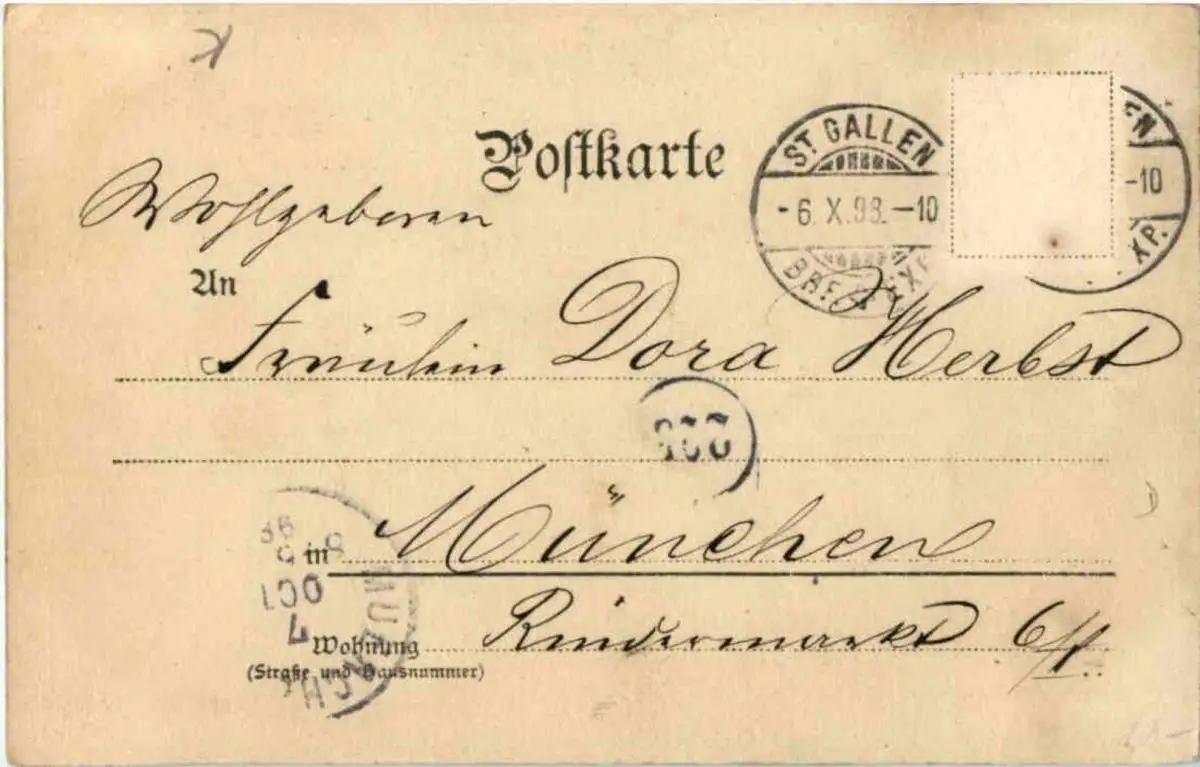 Postkarte
ST GALLEN
-6. X. 98.-10
EN
-10
XP.
Wohlgeboren
An
Fräulein Dora Herbst
in München
Wohnung Rindermarkt 6/1
(Straße und Hausnummer)
7
OCT